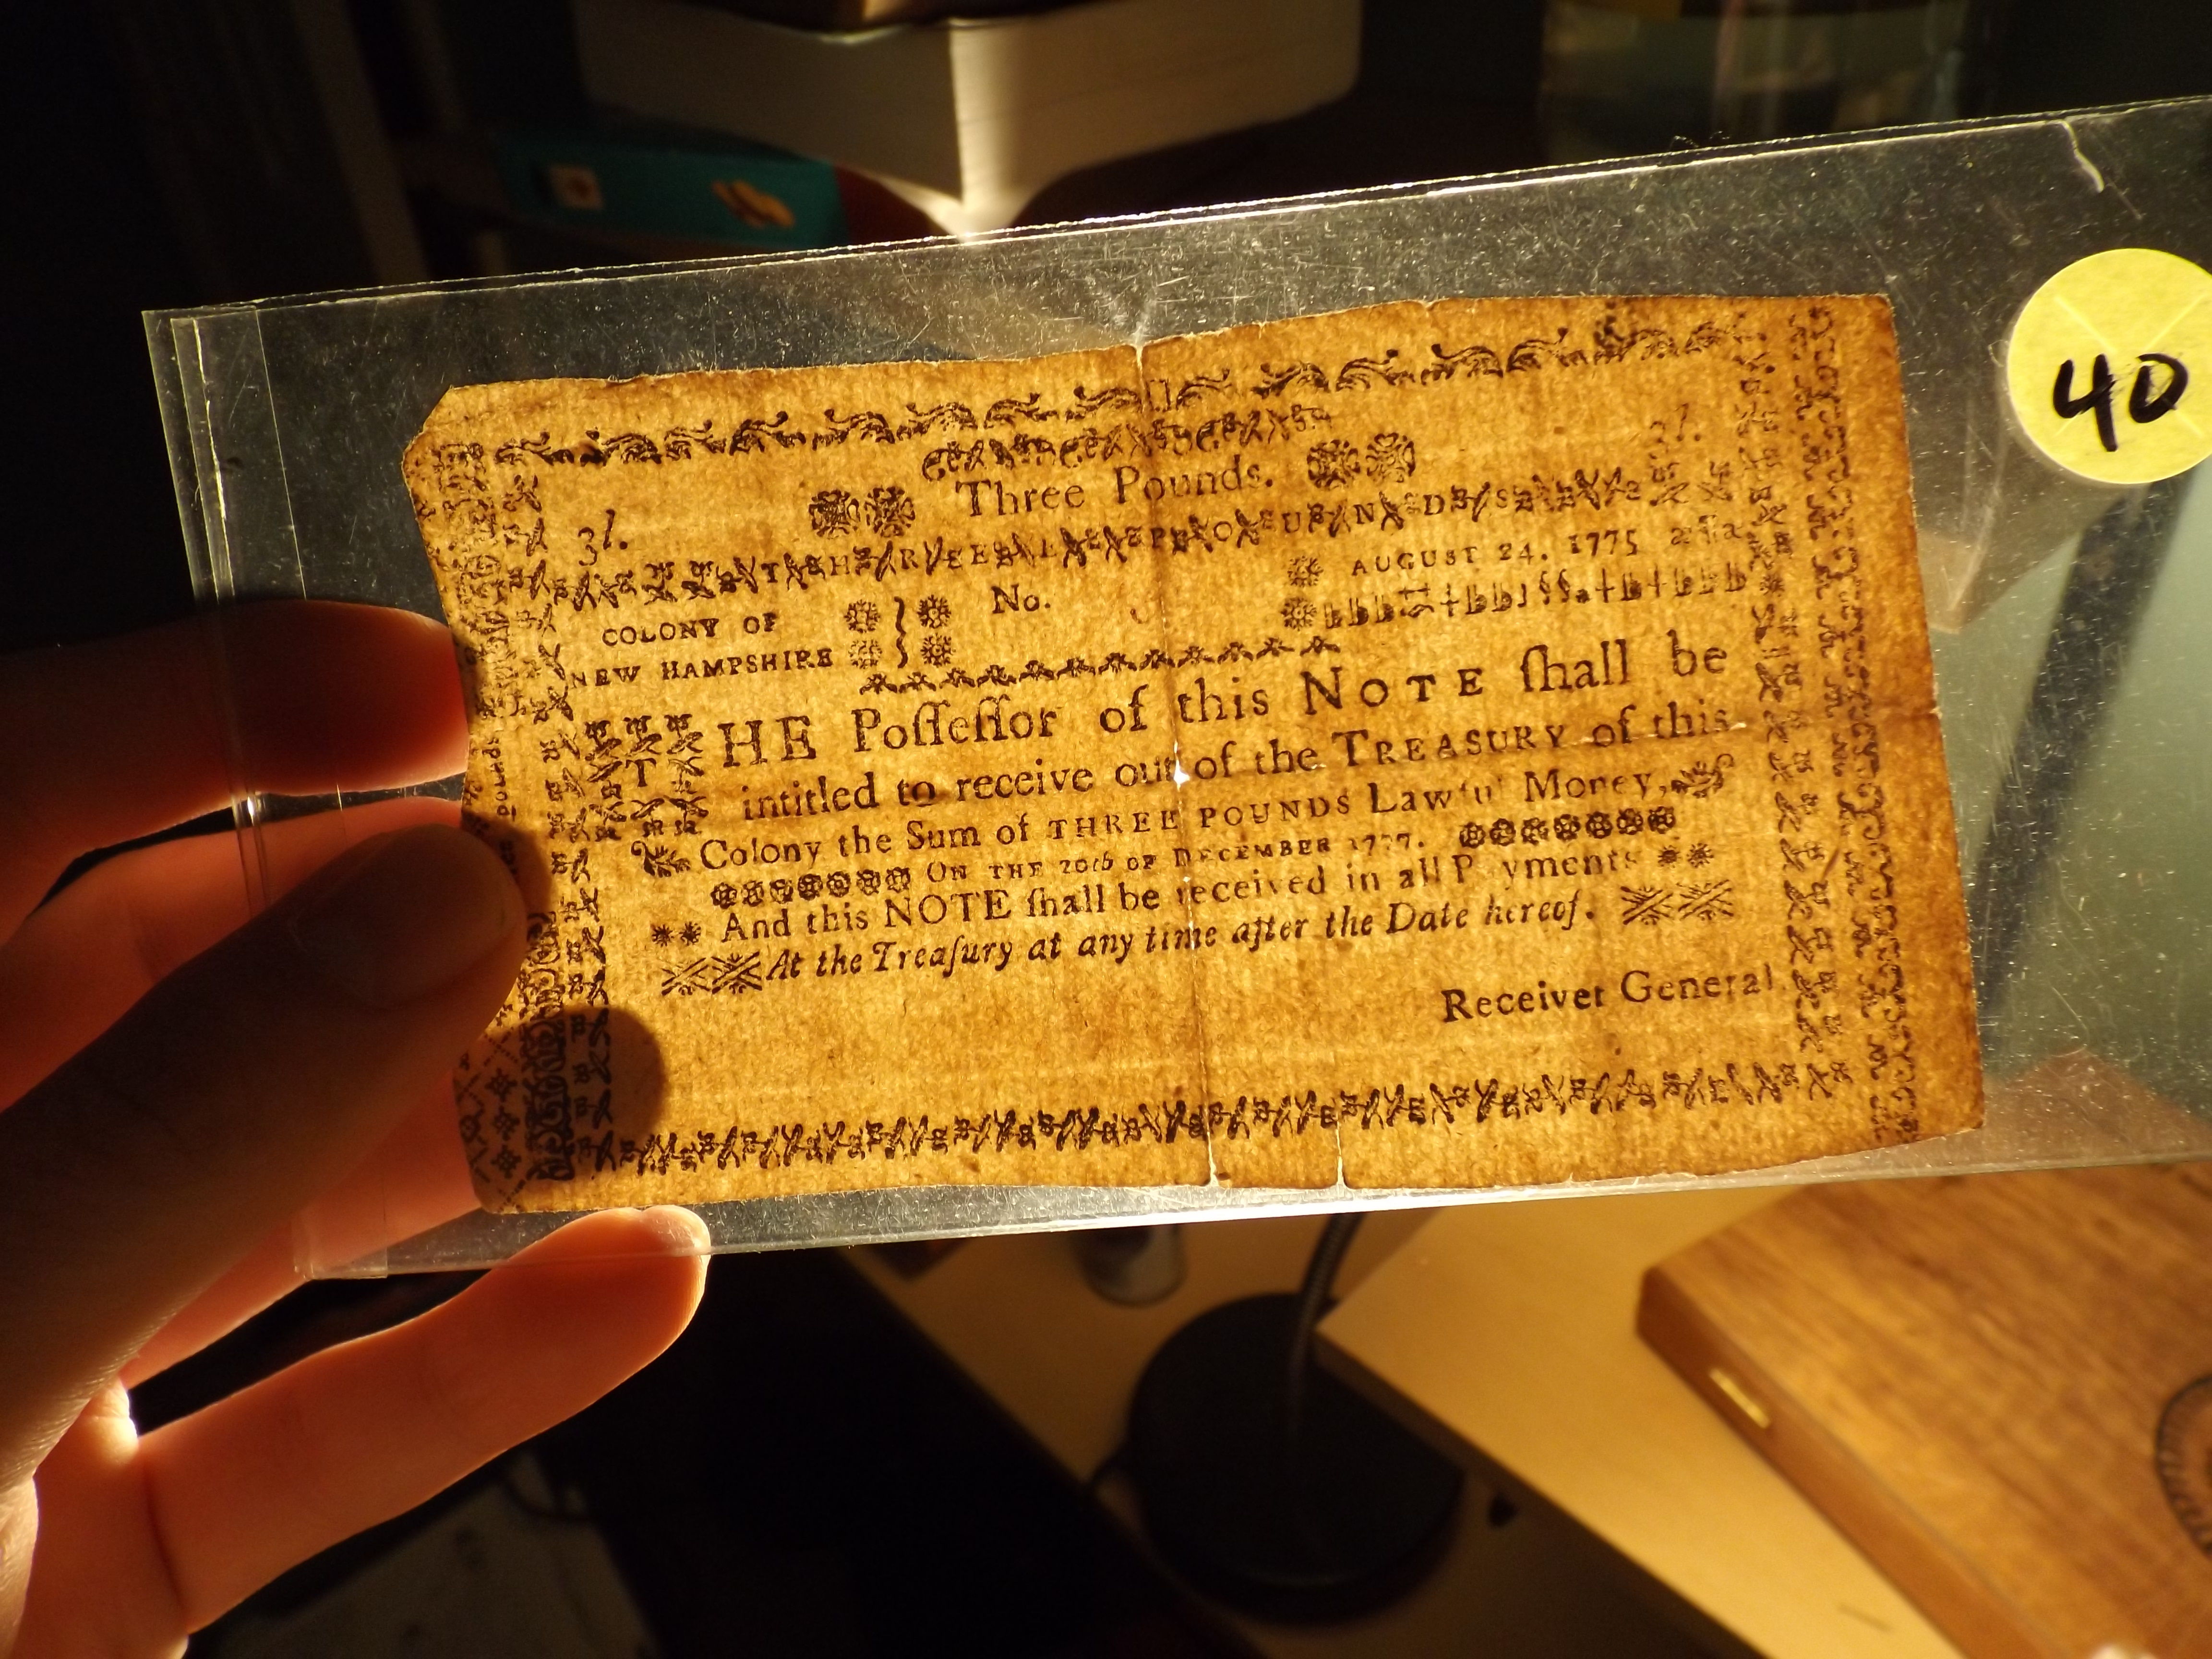 Three Pounds.
3l.
3l.
THREE POUNDS
COLONY OF
NEW HAMPSHIRE
No.
AUGUST 24. 1775
THE Poſſeſſor of this NOTE ſhall be
intitled to receive out of the TREASURY of this
Colony the Sum of THREE POUNDS Lawful Money,
ON THE 20th OF DECEMBER 1777.
And this NOTE ſhall be received in all P yments
At the Treaſury at any time after the Date hereof.
Receiver General
POUNDS
40